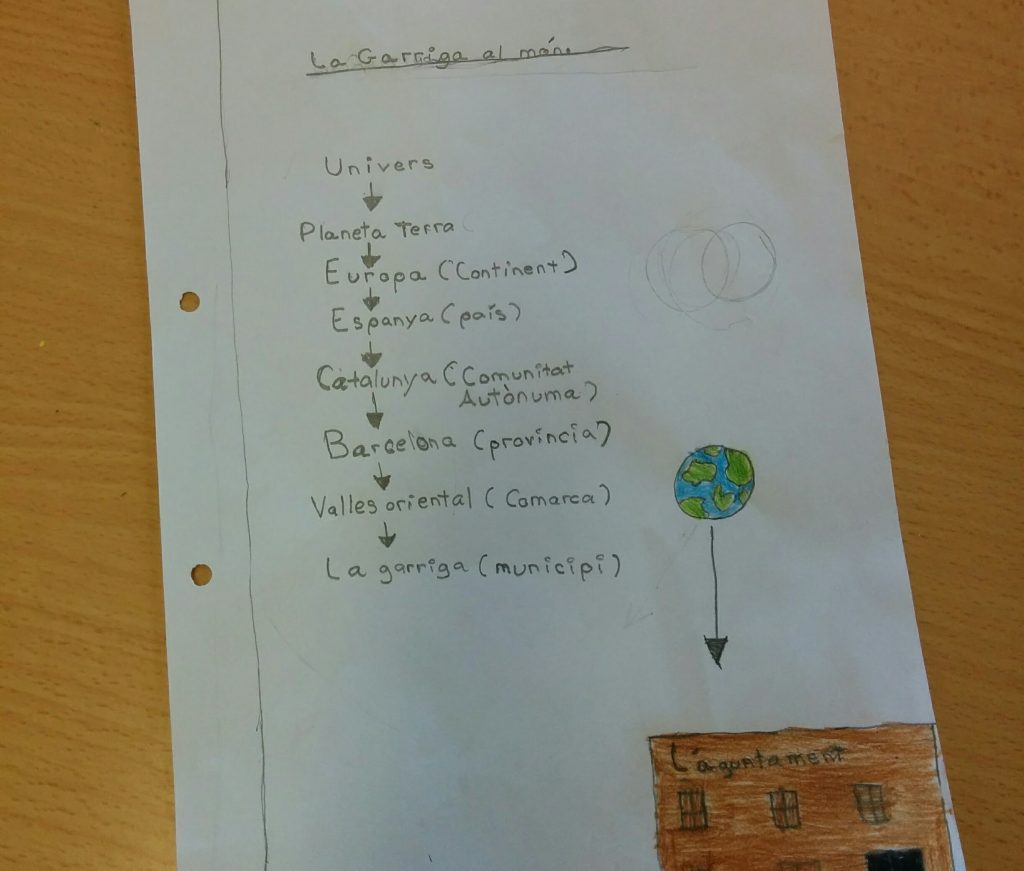 La Garriga al món.
Univers
Planeta Terra
Europa (Continent)
Espanya (país)
Catalunya (Comunitat
Autònuma)
Barcelona (província)
Valles oriental (Comarca)
La garriga (municipi)
L'aguntament